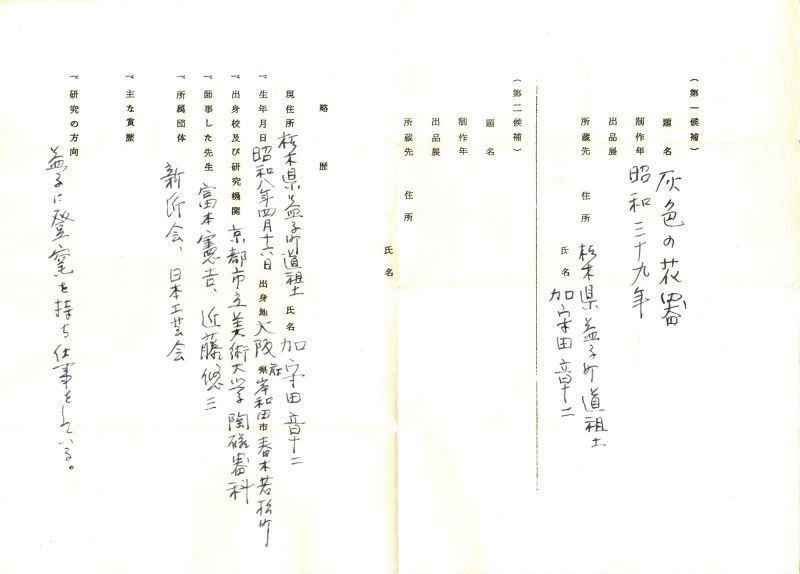 (第一候補)
題名 灰色の花器
制作年 昭和三十九年
出品展
所蔵先 住所 栃木県益子町道祖土
氏名 加守田章二
(第二候補)
題名
制作年
出品展
所蔵先 住所
氏名
略歴
現住所 栃木県益子町道祖土 氏名 加守田章二
、生年月日 昭和八年四月十六日 出身地 大阪府県岸和田市春木若松町
、出身校及び研究機関 京都市立美術大学陶磁器科
、師事した先生 富本憲吉、近藤悠三
、所属団体 新匠会、日本工芸会
、主な賞歴
、研究の方向 益子に登窯を持ち仕事をしている。